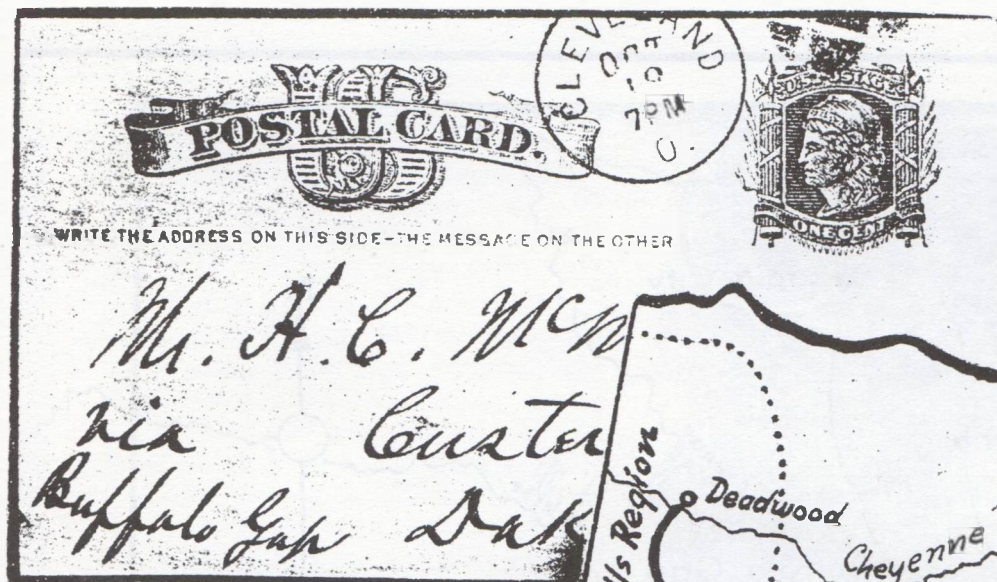 CLEVELAND
10
7 PM
O.
U.S. POSTAGE
ONE CENT
US
POSTAL CARD.
WRITE THE ADDRESS ON THIS SIDE-THE MESSAGE ON THE OTHER
Mr. H. C. McM
via Custer
Buffalo Gap Dak
lls Region
Deadwood
Cheyenne